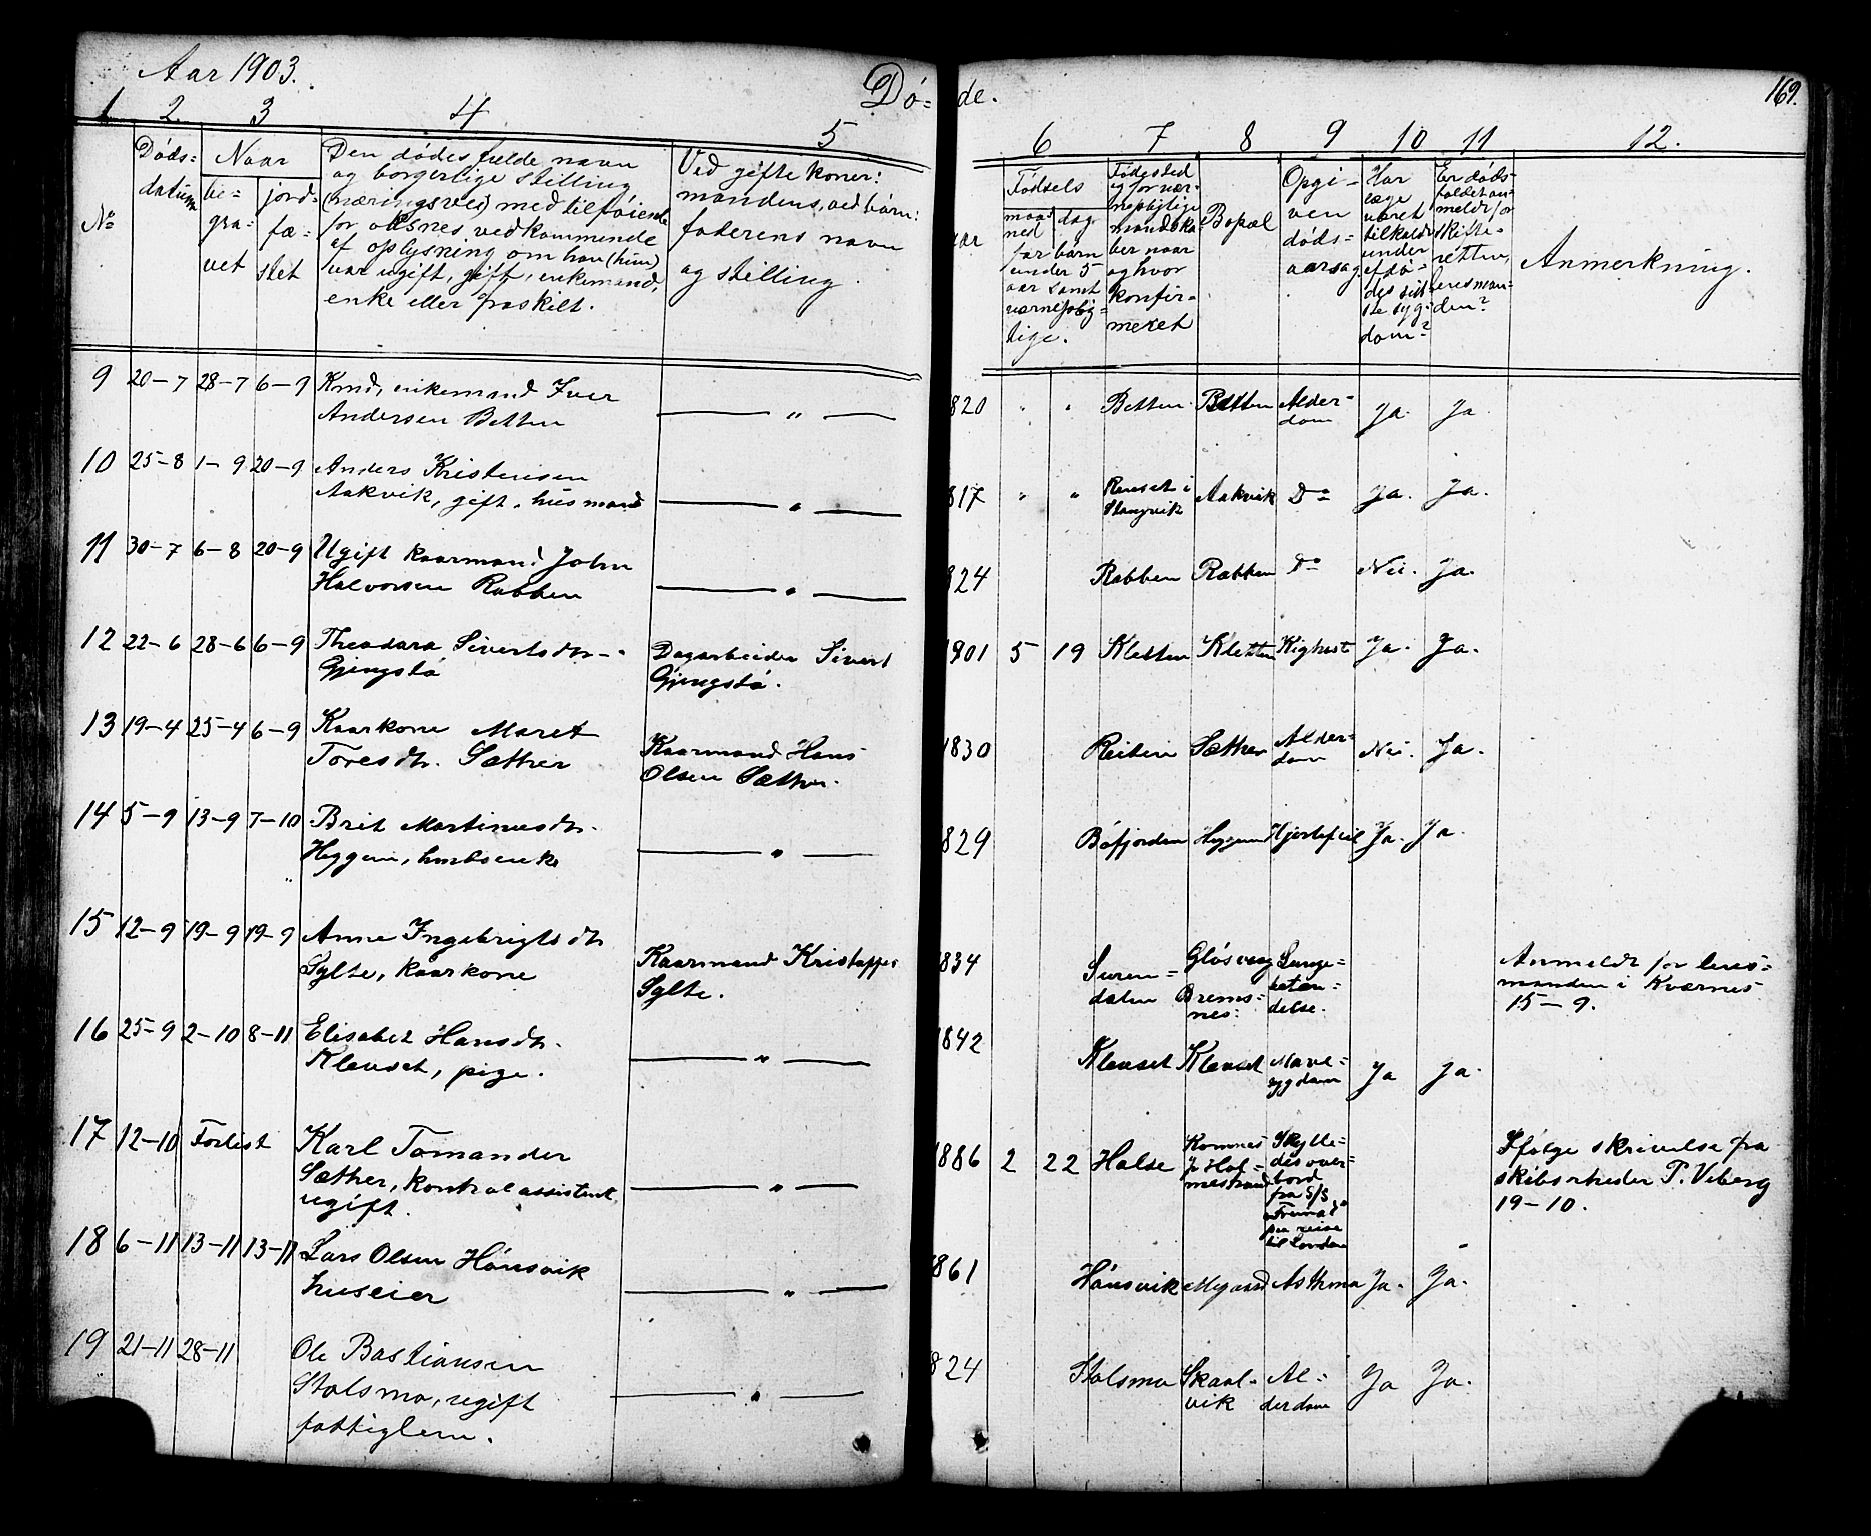 Aar 1903.
Dö=de.
169.
1 2 3 4 5 6 7 8 9 10 11 12.
No
Döds=
datum
Naar
be=
gra=
vet
jord=
fæ=
stet
Den dödes fulde navn
og borgerlige stilling,
(næringsvei) med tilföiende
for voksnes vedkommende
af oplysning om han (hun)
var ugift, gift, enkemand,
enke eller fraskilt.
Ved gifte koner:
mandens, ved börn:
faderens navn
og stilling.
aar
Födsels
maa=
ned
dag
for börn
under 5
aar samt
vernepligt=
tige.
Födested
og for vær=
nepligtige
mandska=
ber naar
og hvor
konfir=
meret
Bopæl
Opgi=
ven
döds=
aarsag
Har
læge
været
tilkaldt
under
afdö=
des sid=
ste syg=
dom?
Er döds=
faldet an=
meldt for
skifte=
retten,
lensman=
den?
Anmerkning.
9 20-7 28-7 6-9 Kmd, enkemand Iver
Andersen Betten
— " —
820 " " Betten Betten Alder=
dom
Ja. Ja.
10 25-8 1-9 20-9 Anders Kristensen
Aakvik, gift, husmand
— " —
817 " " Renset i
Stangvik
Aakvik Do Ja. Ja.
11 30-7 6-8 20-9 Ugift kaarmand John
Halvorsen Rabben
— " —
824 Rabben Rabben Do Nei. Ja.
12 22-6 28-6 6-9 Theodora Sivertsdtr.
Gjengstö
Dagarbeider Sivert
Gjengstö.
1901 5 19 Kletten Kletten Kighost Ja. Ja.
13 19-4 25-4 6-9 Kaarkone Maret
Toresdtr. Sæther
Kaarmand Hans
Olsen Sæther.
1830 Reiten Sæther Alder=
dom
Nei. Ja.
14 5-9 13-9 7-10 Brit Martinusdtr.
Heggem,
— " —
829 Böfjorden Heggem Hjertefeil Ja. Ja.
15 12-9 19-9 19-9 Anne Ingebrigtsdtr
Sylte, kaarkone
Kaarmand Kristoffer
Sylte.
834 Suren=
dalen
Glösvaag
Brems=
nes.
Lunge=
betæn=
delse.
Anmeldt for lens=
manden i Kværnes
15-9.
16 25-9 2-10 8-11 Elisabet Hansdtr.
Klevset, pige.
— " —
1842 Klevset Klevset Mave=
sygdom
Ja Ja.
17 12-10 Forlist Karl Tomander
Sæther, kontrolassistent,
ugift.
— " —
1886 2 22 Halse Romnes
p. Hol=
mestrand
Skylle=
des over=
bord
fra S/S
"Fremad"
paa reise
til London
Ifölge skrivelse fra
skibsrheder P. Viberg
19-10.
18 6-11 13-11 13-11 Lars Olsen Hönsvik
huseier
— " —
861 Hönsvik Megaard Asthma Ja. Ja.
19 21-11 28-11 Ole Bastiansen
Stolsmo, ugift
fattiglem.
— " —
824 Stolsmo Skaal=
vik
Al=
derdom
Ja Ja.